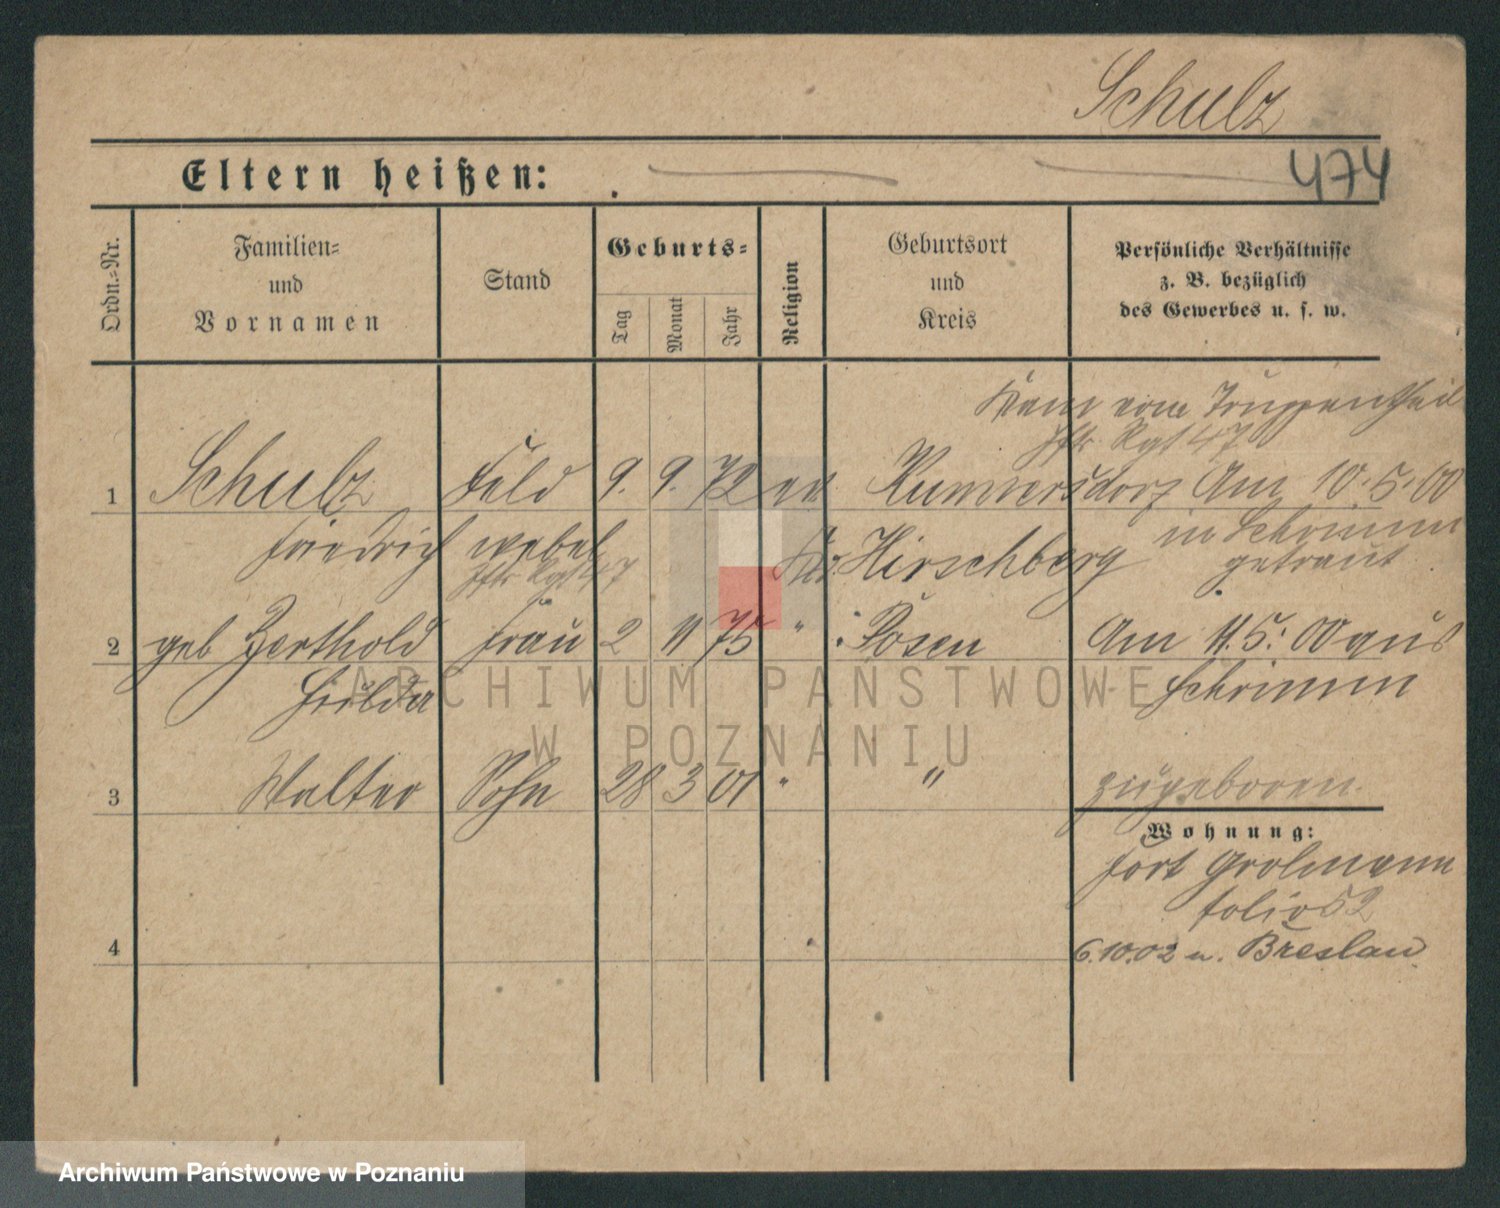 Schulz
Eltern heißen:
474
Ordn.-Nr.
Familien-
und
Vornamen
Stand
Geburts-
Tag
Monat
Jahr
Religion
Geburtsort
und
Kreis
Persönliche Verhältnisse
z. B. bezüglich
des Gewerbes u. s. w.
vom Truppentheil
Rgt 47
1 Schulz Feld 9. 9. 72 ev. Kunnersdorf Am 10.5.00
Friedrich webel Kr. Hirschberg in Schrimm
Rgt 47 getraut
2 geb Berthold Frau 2 11 75 " Posen Am 11.5.00 aus
Hulda Schrimm
3 Walter Sohn 28 3 01 " " zugeboren.
Wohnung:
Fort Grolmann
folio 52
4 6.10.02 n. Breslau
ARCHIWUM PAŃSTWOWE
W POZNANIU
Archiwum Państwowe w Poznaniu